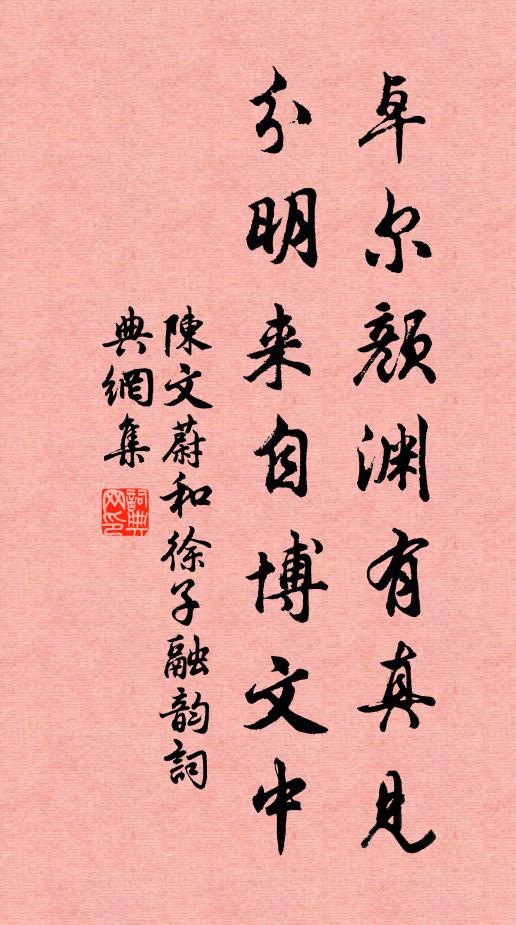 卓尔颜渊有真见
分明来自博文中
陳文蔚和徐子融韵詞
典網集
詞典網印